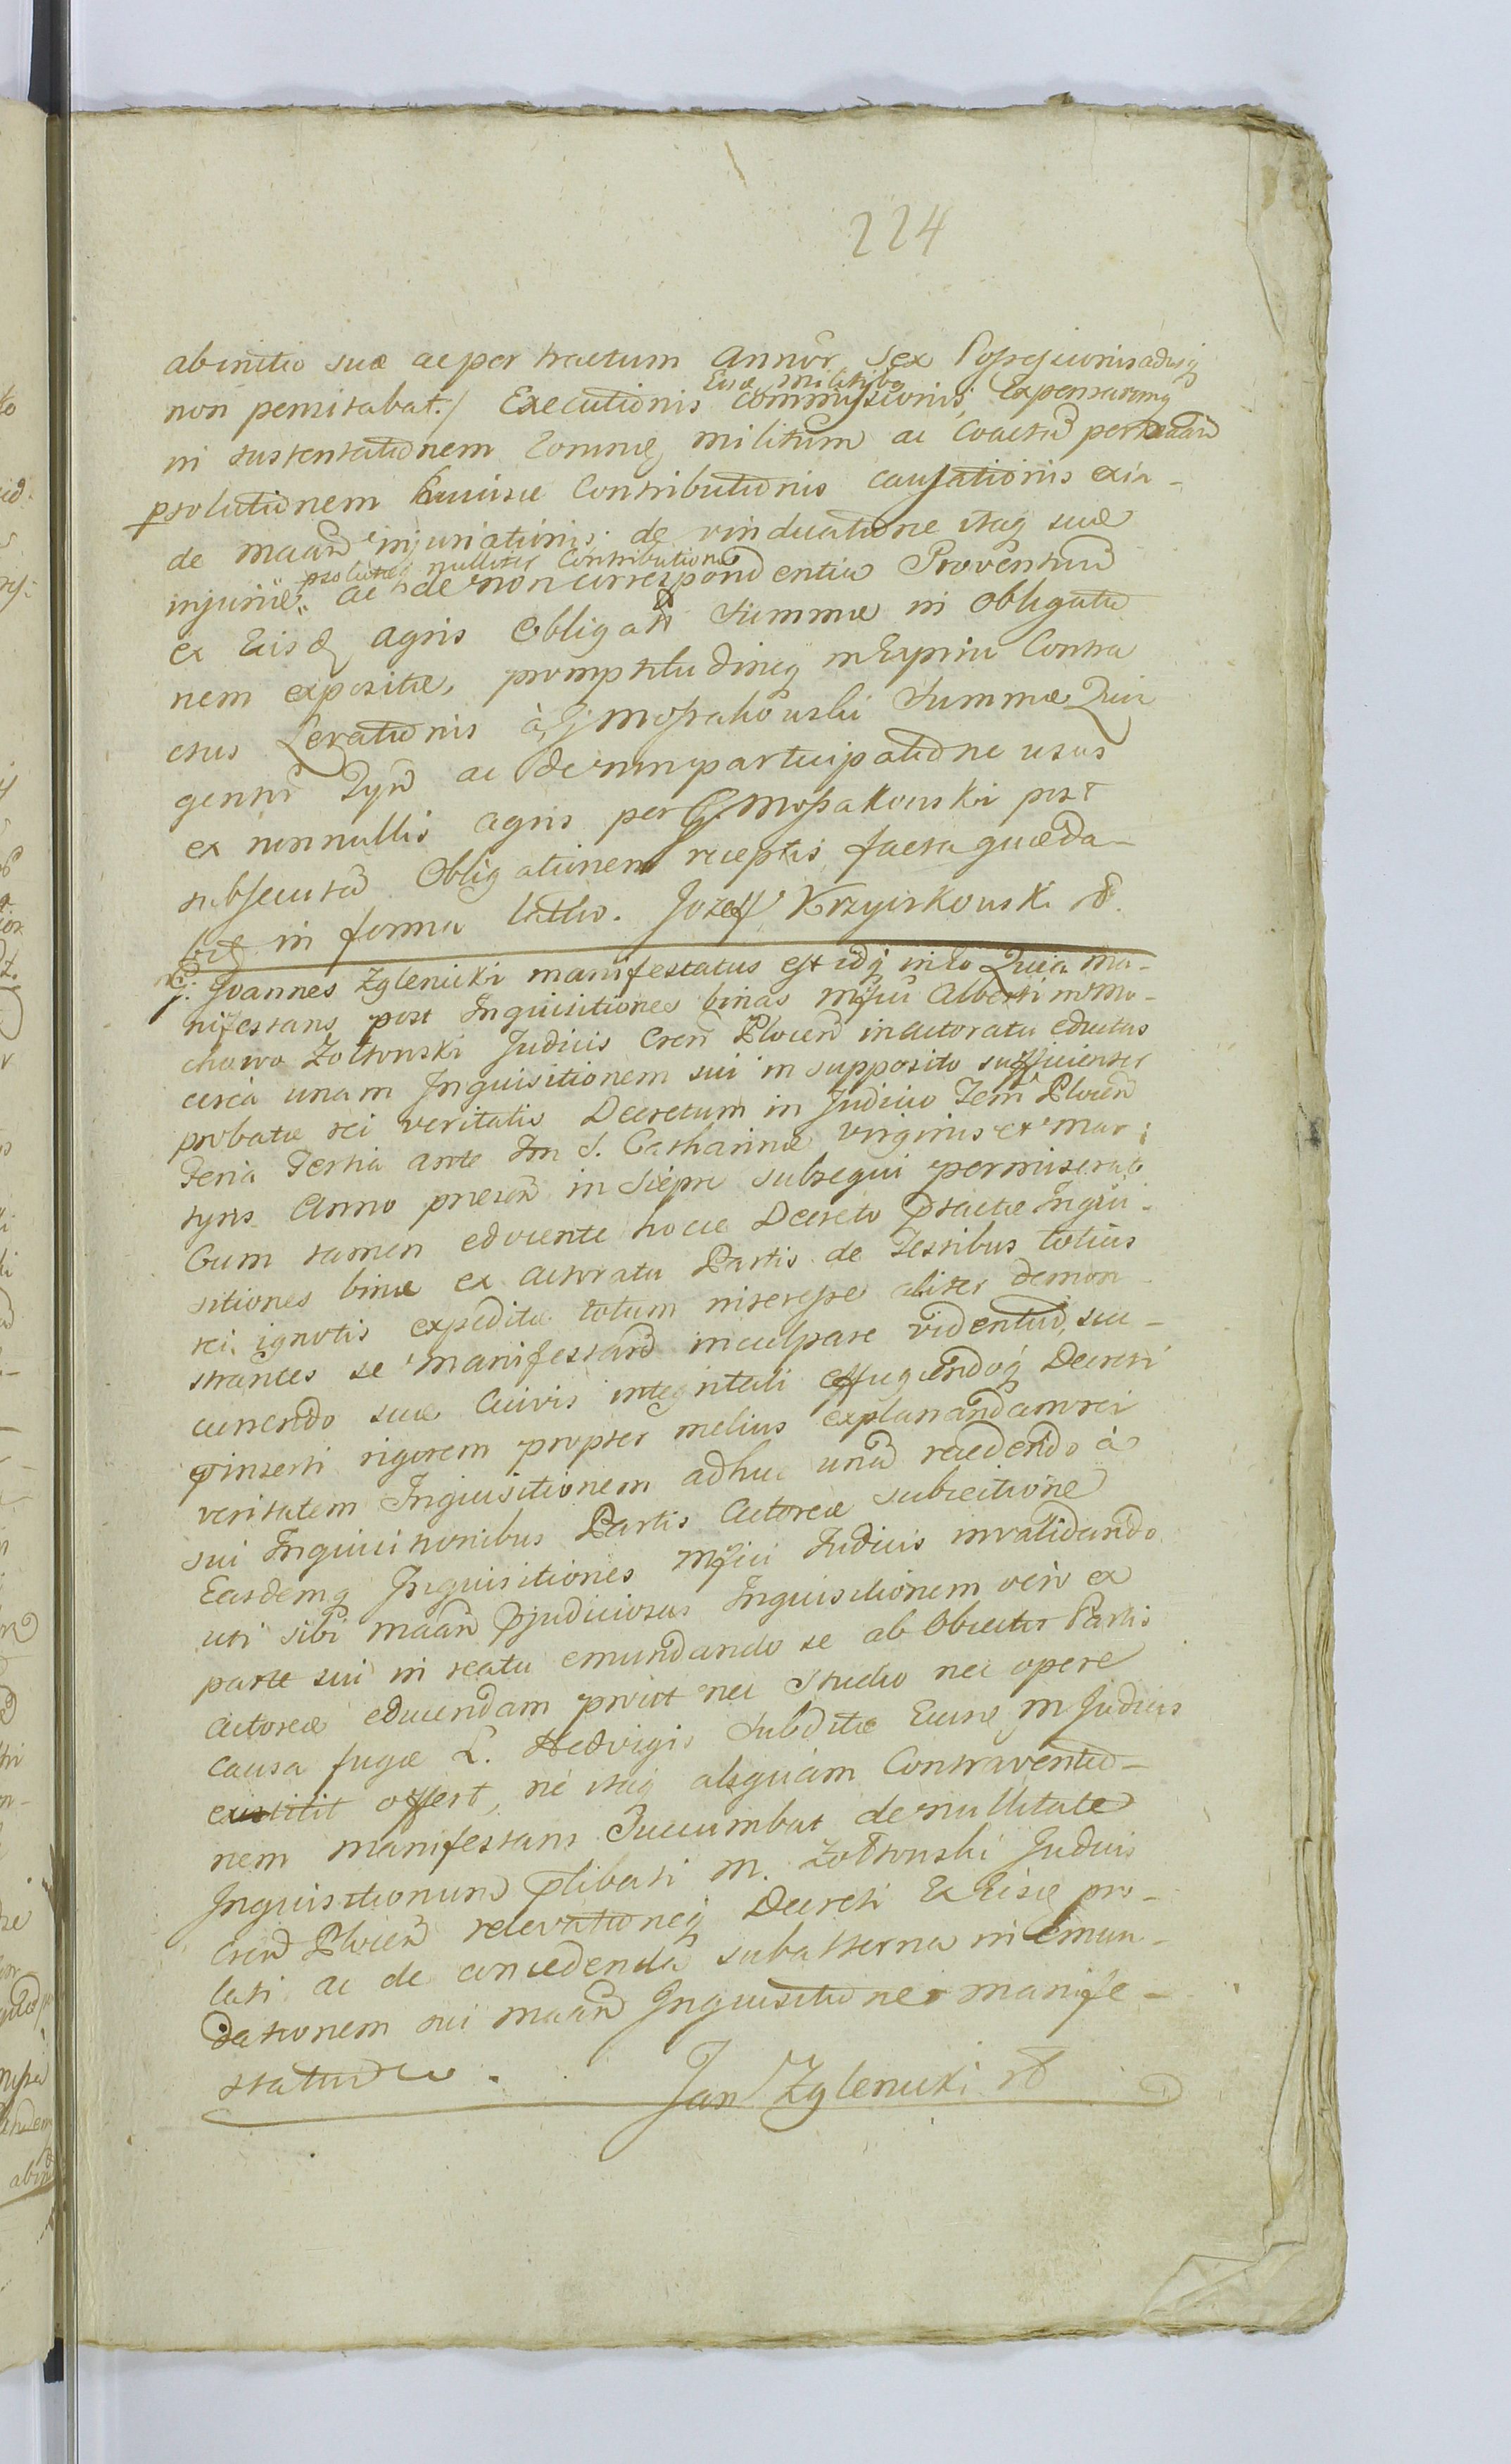 224
ab initio suæ ac per tractum Annor̃ sex Possessionis adusq
non pensitabat./ Executionis Eius militibq Commissionis, Expensarumq
in sustentationem Eorumq militum ac Coactã per maañ
psolutionem huiusce Contributionis causationis exin-
de maañ injuriationis. de vindicatione itaq suæ
injuriæ, psolutæq nulliter Contributionis ac de non correspondentia Proventuũ
ex Eisd agris Obligatis Summæ in Obligatio
nem expositæ, promptitudineq Contra
ctus Levationis à G Mossakowski Summæ Quin
gentor̃ Tyñ ac de non participatione usus
ex nonnullis agris per G. Mossakowski post
subsecutã Obligationem receptis facta quæda-
in forma Józeff Krzyczkowski
G. Joannes Zglenicki manifestatus est idq in Eo Quia ma-
nifestans post Inquisitiones binas Mfici Alberti in Mo-
chowo Zołtowski Judicis Cren̄ Plocen̄ in actoratu eductas
circa unam Inquisitionem sui in supposito sufficienter
probatæ rei veritatis Decretum in Judicio Terr̃ Plocen̄
Feria Tertia ante Fm S. Catharinæ Virginis et Mar-
tyris Anno præsen̄ in Sierpc subsequi permiserat
Cum tamen educente hocce Decreto Inqui-
sitiones binæ ex Actoratu Partis de Testibus totius
rei ignotis expeditæ totum interesse aliter demon-
strantes se manifestañ inculpare videntur, suc-
currendo suæ Civis integritati effugiendoq Decreti
pinserti rigorem propter melius explanandam rei
veritatem Inquisitionem adhuc unã recedendo à
sui Inquisitionibus Partis Actoreæ subiectione
Easdemq Inquisitiones Mfici Judicis invalidando
uti sibi maañ pjudiciosas Inquisitionem vero ex
parte sui in reatu emundando se ab Obiectis Partis
Actoreæ educendam prout nec studio nec opere
causa fugæ L. Hedvigis Subditæ M Judicis
extitit offert, ne itaq aliquam Contraventio-
nem manifestans Succumbat de nullitate
Inquisitionum plibati M. Zołtowski Judicis
Cren̄ Plocen̄ relevationeq Decreti Ex Eisq pro-
lati ac de concedenda subalterna in Emun-
dationem sui maañ Inquisitione manife-
statur
Jan Zglenicki